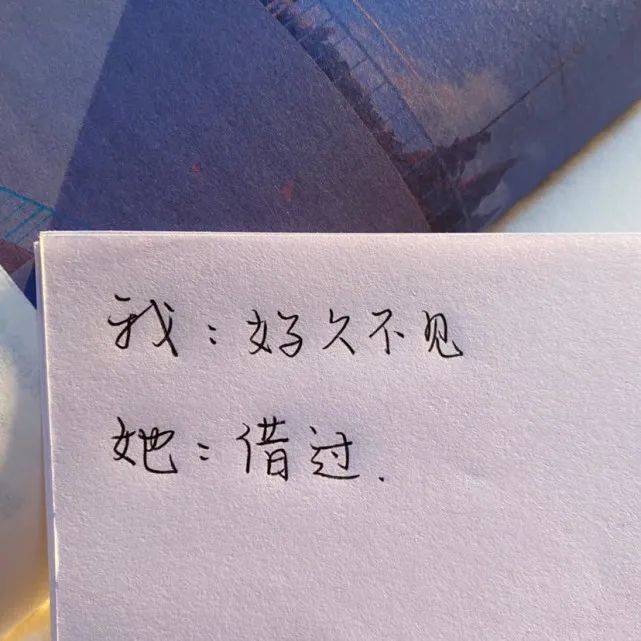 我：好久不见
她：借过.